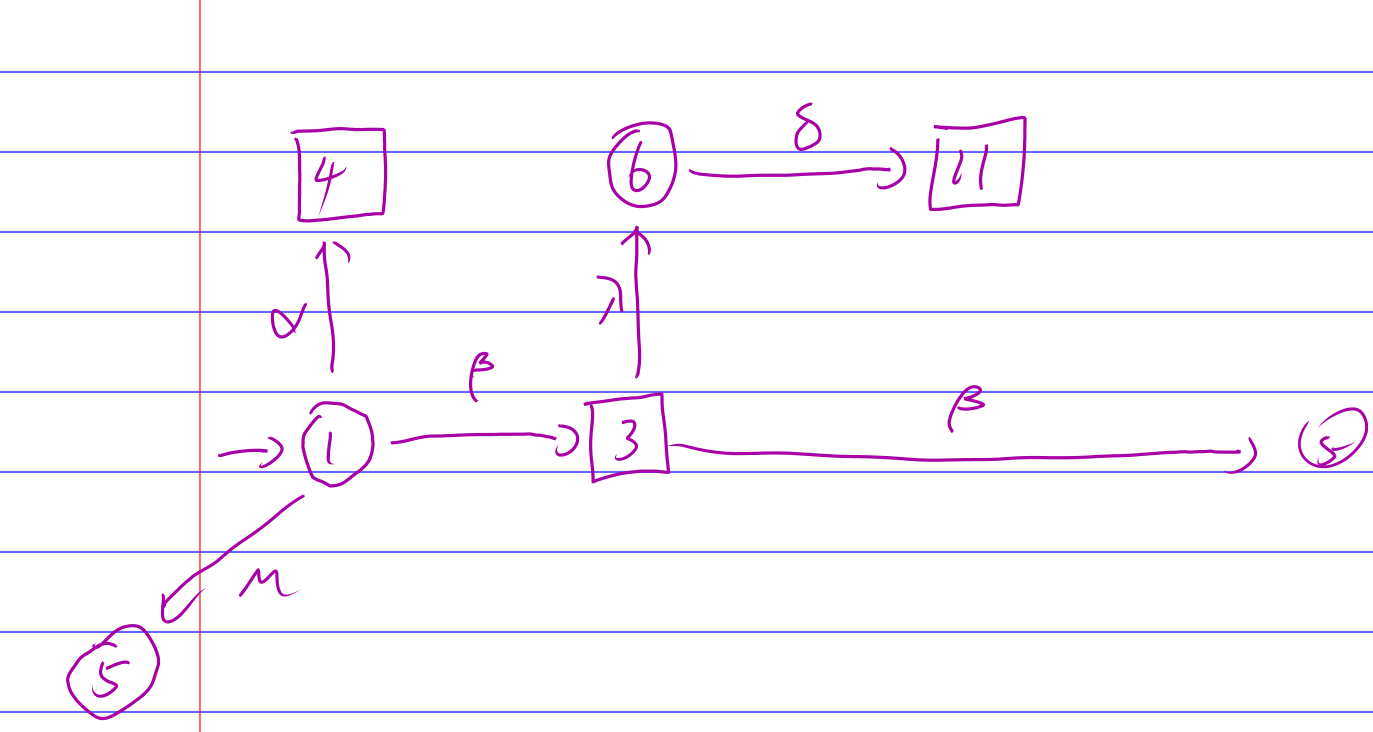 δ
4 6 11
α λ
β β
1 3 5
μ
5